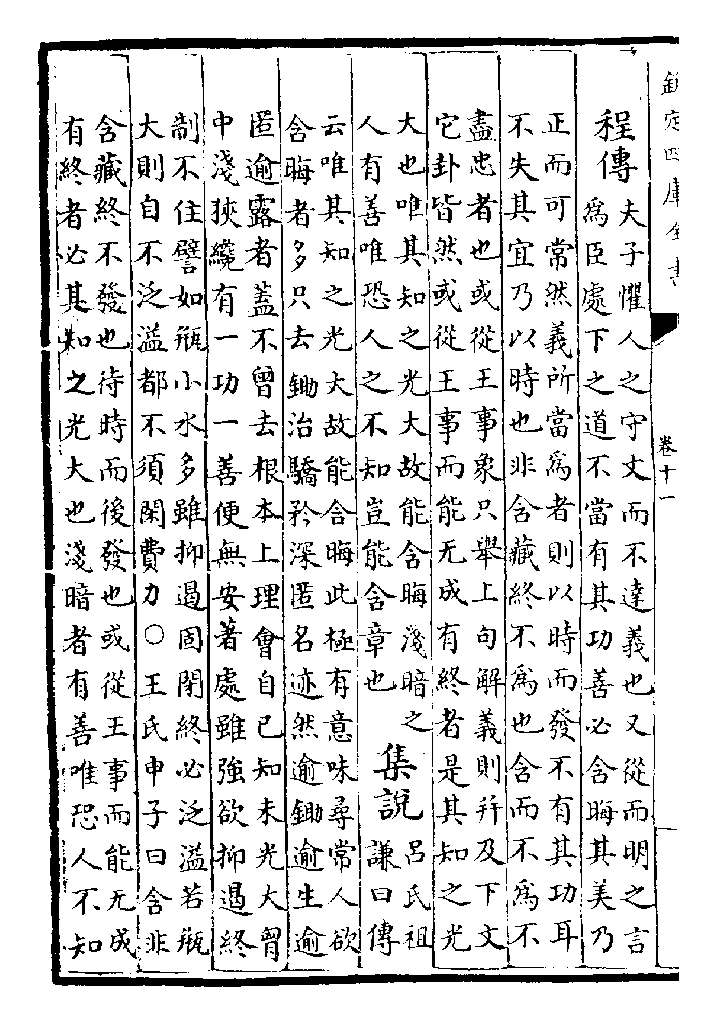 欽定四庫全書
卷十一
程傳夫子懼人之守文而不達義也又從而明之言
為臣處下之道不當有其功善必含晦其美乃
正而可常然義所當為者則以時而發不有其功耳
不失其宜乃以時也非含藏終不為也含而不為不
盡忠者也或從王事象只舉上句解義則并及下文
它卦皆然或從王事而能无成有終者是其知之光
大也唯其知之光大故能含晦淺暗之
人有善唯恐人之不知豈能含章也
集說呂氏祖
謙曰傳
云唯其知之光大故能含晦此極有意味尋常人欲
含晦者多只去鋤治驕矜深匿名迹然逾鋤逾生逾
匿逾露者蓋不曾去根本上理會自己知未光大胷
中淺狹纔有一功一善便無安著處雖強欲抑遏終
制不住譬如瓶小水多雖抑遏固閉終必泛溢若瓶
大則自不泛溢都不須閑費力○王氏申子曰含非
含藏終不發也待時而後發也或從王事而能无成
有終者必其知之光大也淺暗者有善唯恐人不知